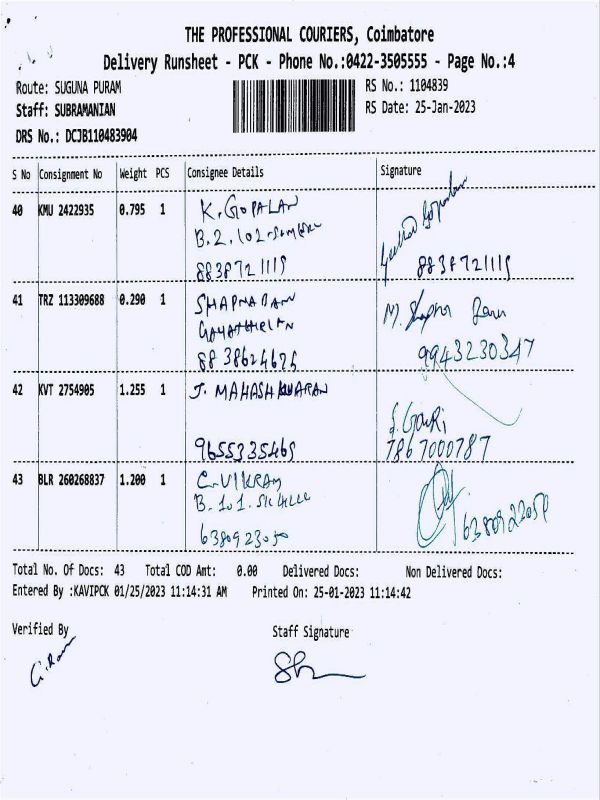 THE PROFESSIONAL COURIERS, Coimbatore
Delivery Runsheet - PCK - Phone No.:0422-3505555 - Page No.:4
Route: SUGUNA PURAM
RS No.: 1104839
Staff: SUBRAMANIAN
RS Date: 25-Jan-2023
DRS No.: DCJB110483904
S No Consignment No Weight PCS Consignee Details Signature
40 KMU 2422935 0.795 1 K. GOPALAN
B.2.102
8838721119 8838721119
41 TRZ 113309688 0.290 1 SHAPNABANU M. Shapna Banu
9943230347
42 KVT 2754905 1.255 1 J. MAHASHKUARAN
S. Gowri
9655335469 7867000787
43 BLR 260268837 1.200 1 C. VIKRAM
B. 101.
6380923050 6380923050
Total No. Of Docs: 43 Total COD Amt: 0.00 Delivered Docs: Non Delivered Docs:
Entered By :KAVIPCK 01/25/2023 11:14:31 AM Printed On: 25-01-2023 11:14:42
Verified By Staff Signature